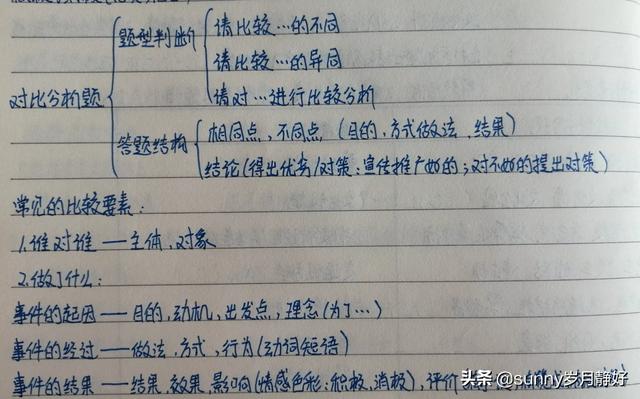 题型判断
请比较…的不同
请比较…的异同
请对…进行比较分析
对比分析题
答题结构
相同点、不同点(目的、方式做法、结果)
结论(得出优劣/对策:宣传推广好的;对不好的提出对策)
常见的比较要素:
1.谁对谁——主体、对象
2.做了什么:
事件的起因——目的,动机,出发点,理念(为了…)
事件的经过——做法、方式,行为(动词短语)
事件的结果——结果、效果、影响(情感色彩:积极、消极),评价
头条 @sunny岁月静好